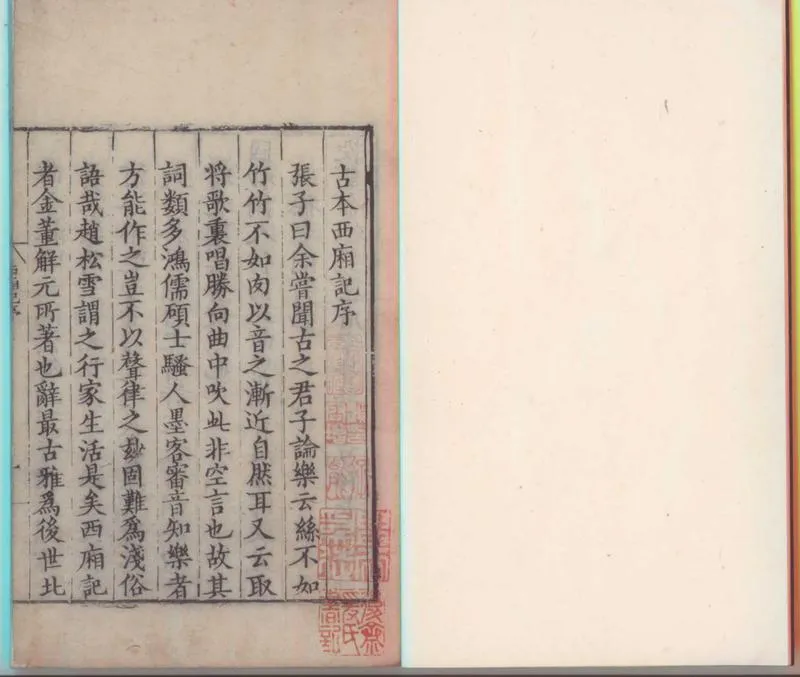 古本西廂記序
張子曰余嘗聞古之君子論樂云絲不如
竹竹不如肉以音之漸近自然耳又云取
将歌裏唱勝向曲中吹此非空言也故其
詞類多鴻儒碩士騷人墨客審音知樂者
方能作之豈不以聲律之玅固難爲淺俗
語哉趙松雪謂之行家生活是矣西廂記
者金董解元所著也辭最古雅爲後世北